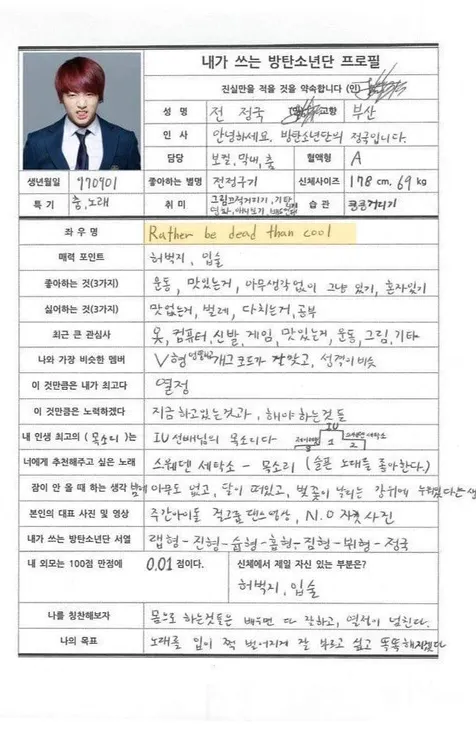 내가 쓰는 방탄소년단 프로필
진실만을 적을 것을 약속합니다 (인)
성 명 전 정국 고향 부산
인 사 안녕하세요. 방탄소년단의 정국입니다.
담당 보컬, 막내, 춤 혈액형 A
생년월일 970901 좋아하는 별명 전정구기 신체사이즈 178 cm, 69 kg
특 기 춤, 노래 취 미 그림끄적거리기, 기타 영화, 습 관 킁킁거리기
좌 우 명 Rather be dead than cool
매력 포인트 허벅지, 입술
좋아하는 것(3가지) 운동, 맛있는거, 아무생각없이 그냥 있기, 혼자있기
싫어하는 것(3가지) 맛없는거, 벌레, 다치는거, 공부
최근 큰 관심사 옷, 컴퓨터, 신발, 게임, 맛있는거, 운동, 그림, 기타
나와 가장 비슷한 멤버 V형 개그코드가 맞고, 성격이 비슷
이 것만큼은 내가 최고다 열정
이 것만큼은 노력하겠다 지금 하고있는것과, 해야 하는것들
내 인생 최고의 ( 목소리 )는 IU선배님의 목소리다 IU 1 2 3
너에게 추천해주고 싶은 노래 스웨덴 세탁소 - 목소리 (슬픈 노래를 좋아한다.)
잠이 안 올 때 하는 생각 밤에 아무도 없고, 달이 떠있고, 벚꽃이 날리는 강위에 누워있다는 생
본인의 대표 사진 및 영상 주간아이돌 걸그룹댄스영상, N.O 자켓사진
내가 쓰는 방탄소년단 서열 랩형 - 진형 - 슙형 - 홉형 - 짐형 - 뷔형 - 정국
내 외모는 100점 만점에 0.01 점이다. 신체에서 제일 자신 있는 부분은?
허벅지, 입술
나를 칭찬해보자 몸으로 하는것들은 배우면 다 잘하고, 열정이 넘친다.
나의 목표 노래를 입이 쩍 벌어지게 잘 부르고 싶고 똑똑해지겠다